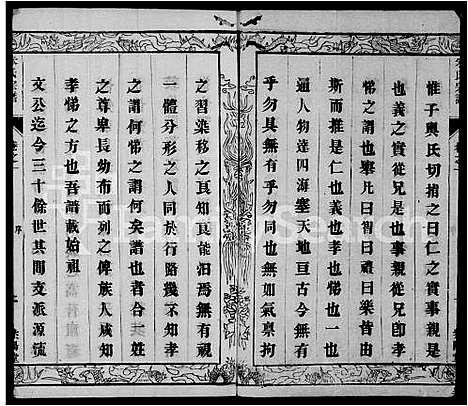 惟子輿氏切指之曰仁之實事親是
也義之實從兄是也事親從兄即孝
悌之謂也舉凡曰智曰禮曰樂皆由
斯而推是仁也義也孝悌也一也
通人物達四海塞天地亘古今無有
乎勿具無有乎勿同也無如氣稟拘
之習染移之良知良能汩焉無有視
一體分形之人同於行路幾不知孝
之謂何悌之謂何矣譜也者合一姓
之尊卑長幼布而列之俾族人咸知
孝悌之方也吾譜載始祖
文公迄今三十餘世其間支派源流
序
FamilySearch